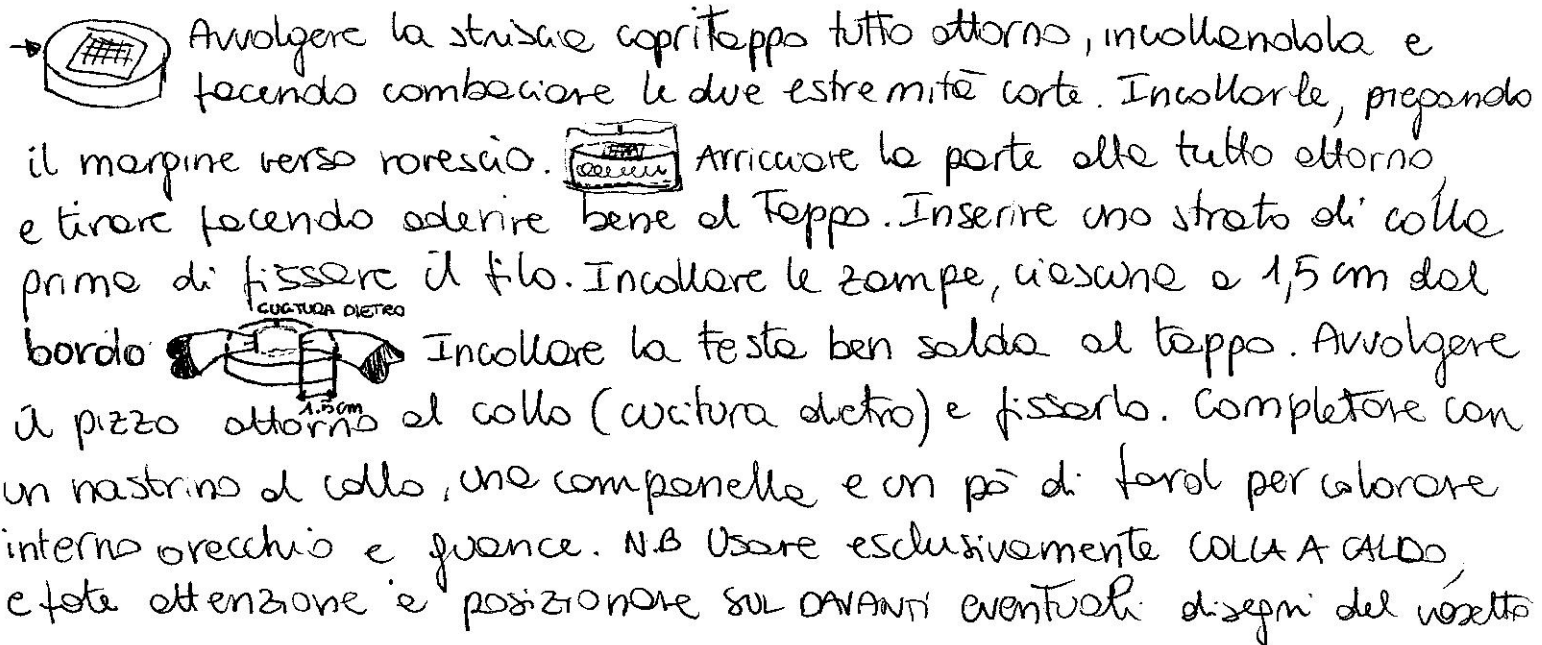 Avvolgere la striscia copritappo tutto attorno, incollandola e
facendo combaciare le due estremità corte. Incollarle, piegando
il margine verso rovescio. Arricciare la parte alta tutto attorno,
e tirare facendo aderire bene al Tappo. Inserire uno strato di colla
prima di fissare il filo. Incollare le zampe, ciascuna a 1,5 cm dal
CUCITURA DIETRO
bordo Incollare la testa ben salda al tappo. Avvolgere
1.5cm
il pizzo attorno al collo (cucitura dietro) e fissarlo. Completare con
un nastrino al collo, una campanella e un pò di fard per colorare
interno orecchio e guance. N.B Usare esclusivamente COLLA A CALDO,
e fate attenzione a posizionare SUL DAVANTI eventuali disegni del vasetto